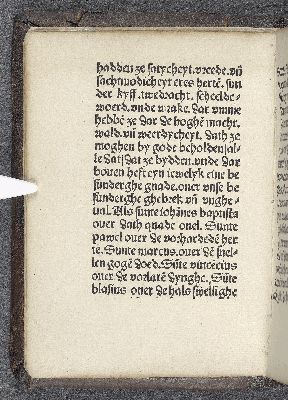 hadden ze satycheyt. vrede. vñ
sachtmodicheyt eres hertē. sun
der kyff. twedracht. schelde-
woerd. vnde wrake. dar vmme
hebbē ze dar de hoghē macht.
wald. vñ weerdycheyt. dath ze
moghen by gode beholden al-
le dat dat ze bydden. vnde dar
bouen hefft eyn iewelyk eine be
sunderghe gnade. ouer vnse be
sunderghe ghebrek vñ vnghe-
ual. Als sunte iohānes baptista
ouer dath quade ouel. Sunte
pawel ouer de vorhardedē her
te. Sunte marcus. ouer dē snel-
len gogē doed. Sūte vincencius
ouer de vorlarē dynghe. Sūte
blasius ouer de hals swellighe